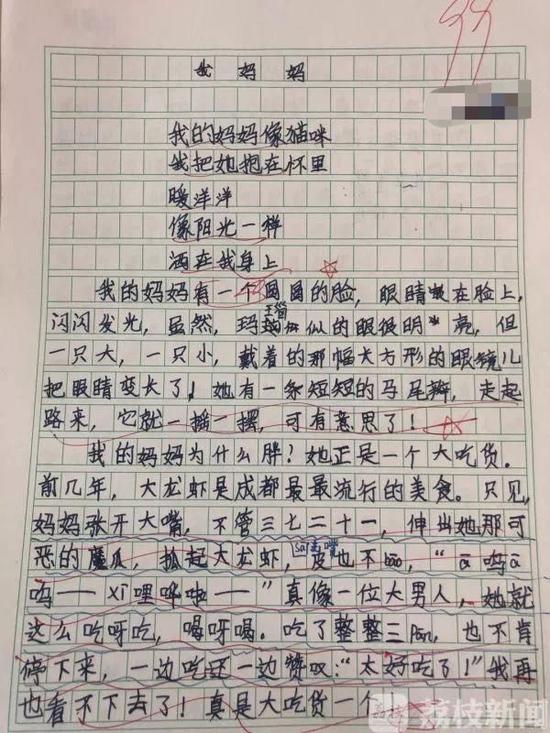 99
我妈妈
我的妈妈像猫咪
我把她抱在怀里
暖洋洋
像阳光一样
洒在我身上
我的妈妈有一个圆圆的脸，眼睛长在脸上，
闪闪发光，虽然，玛瑙似的眼很明亮，但
一只大，一只小，戴着的那幅大方形的眼镜儿
把眼睛变长了！她有一条短短的马尾辫，走起
路来，它就一摇一摆，可有意思了！
我的妈妈为什么胖？她正是一个大吃货。
前几年，大龙虾是成都最最流行的美食。只见，
妈妈张开大嘴，不管三七二十一，伸出她那可
恶的魔爪，抓起大龙虾，皮也不bāo，“ā呜ā
呜——xī哩哗啦——”真像一位大男人，她就
这么吃呀吃，喝呀喝。吃了整整三pán，也不肯
停下来，一边吃还一边赞叹：“太好吃了！”我再
也看不下去了！真是大吃货一个
荔枝新闻